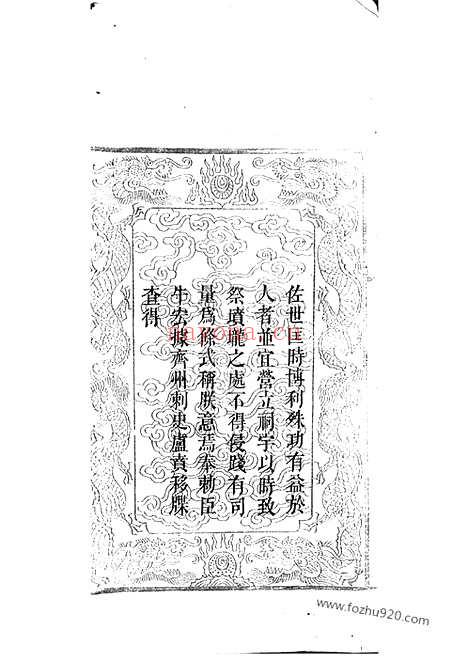 佐世一時博利殊功有益於
人者並宜營立祠宇以時致
祭墳壠之處不得侵踐有司
量爲條式稱朕意焉奉勅臣
牛宏據齊州刺史盧賁移牒
查得
nayona.cn
www.fozhu920.com